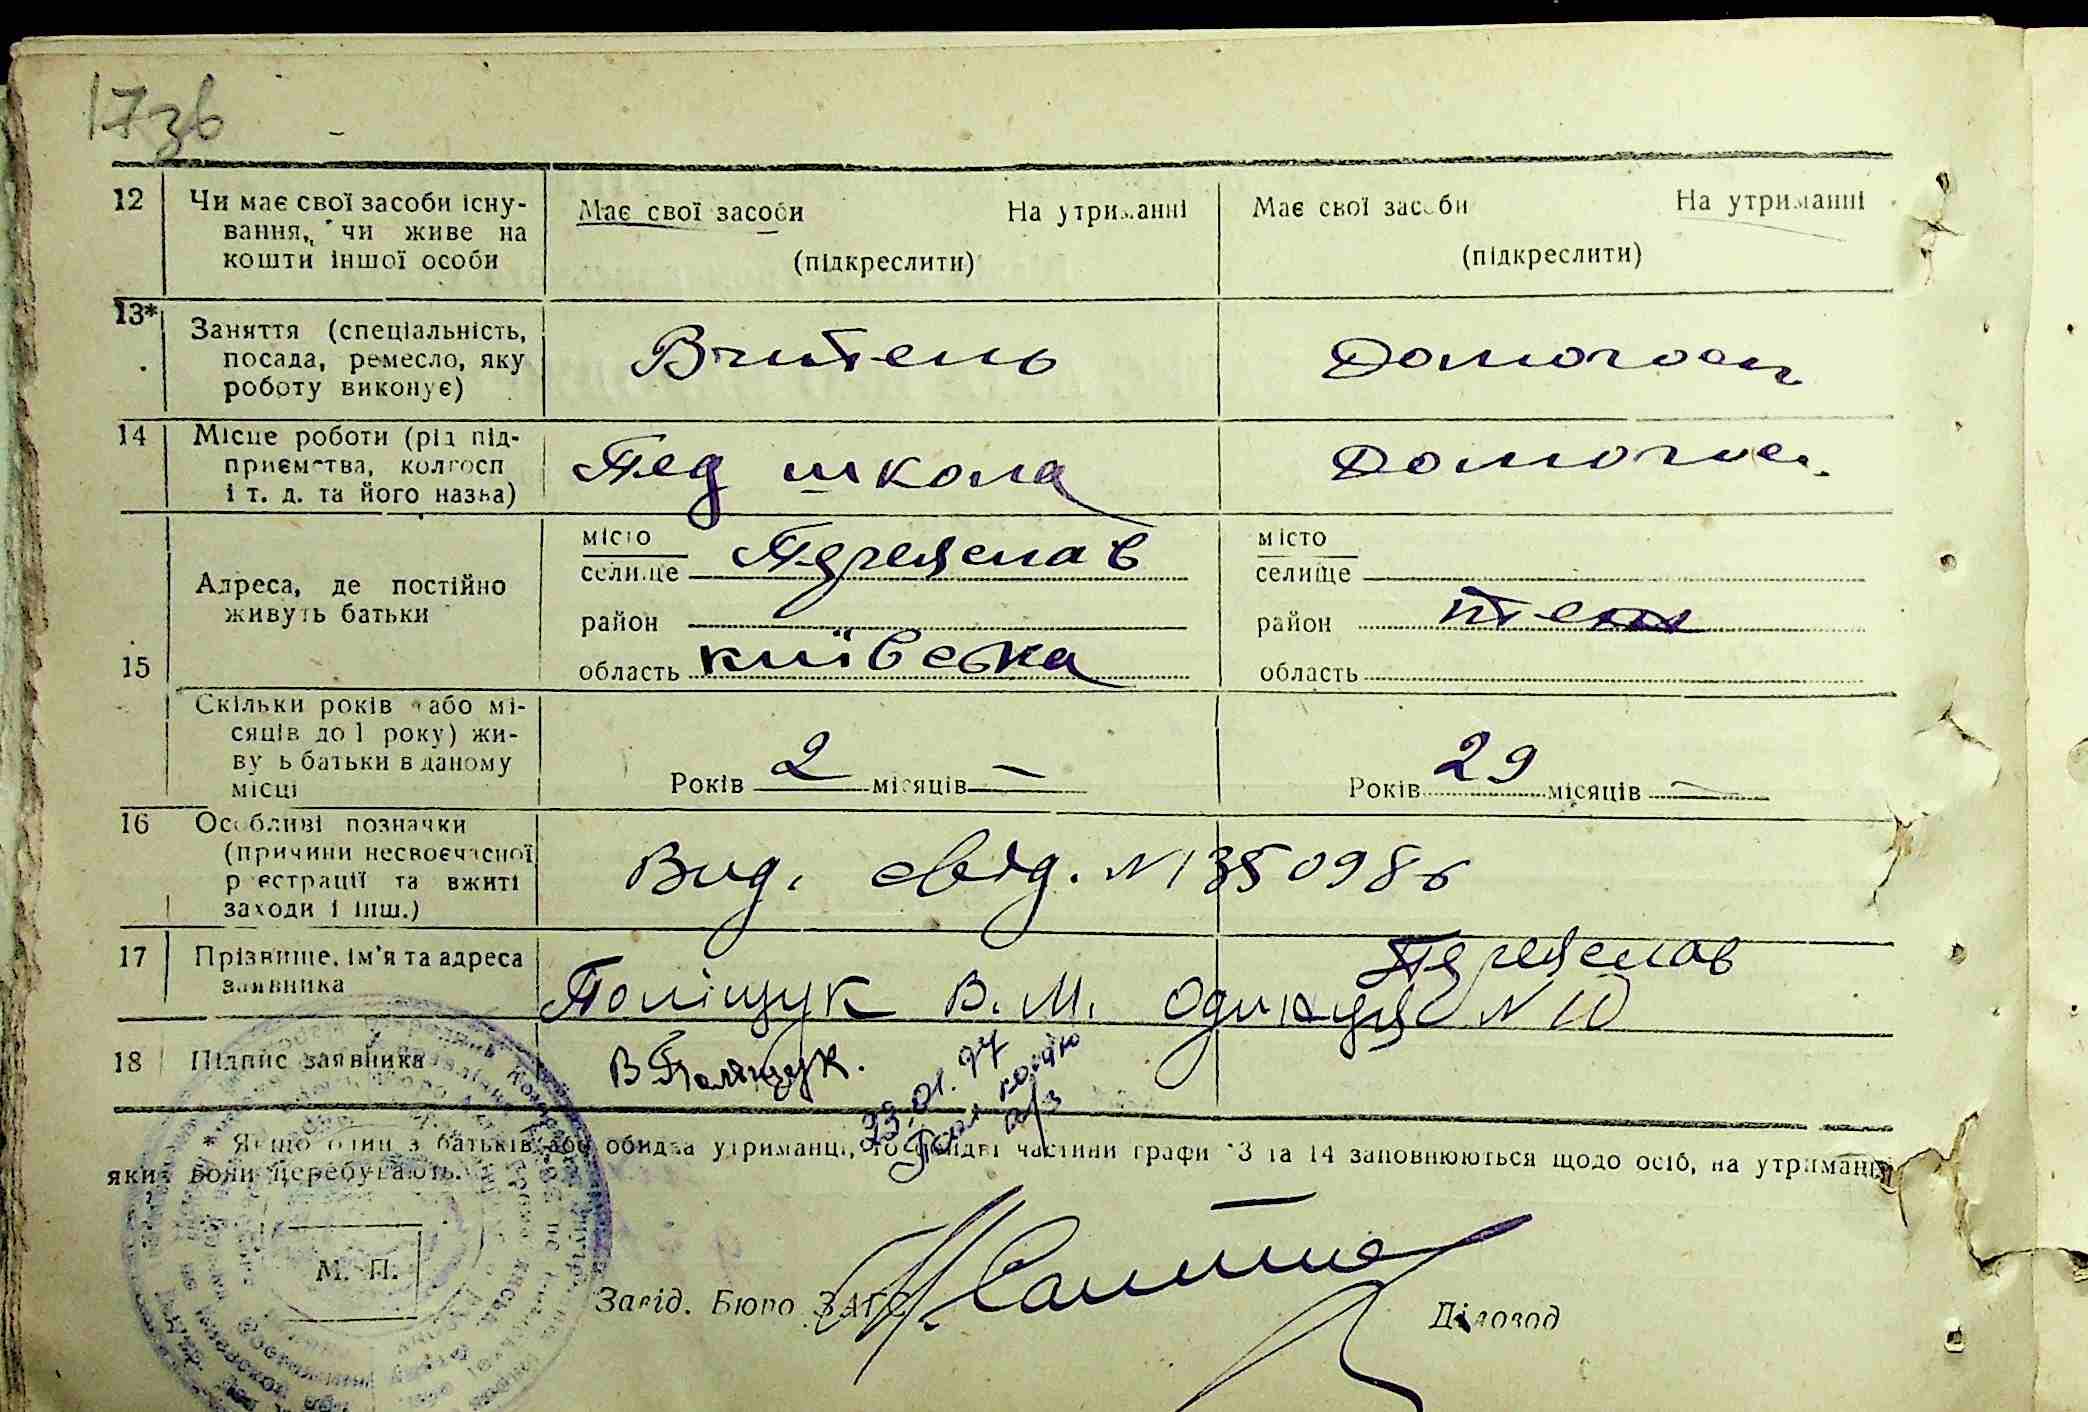 17зв
12 Чи має свої засоби існу- Має свої засоби На утриманні Має свої засоби На утриманні
вання, чи живе на (підкреслити) (підкреслити)
кошти іншої особи
13* Заняття (спеціальність, Вчитель Домогосп
посада, ремесло, яку
роботу виконує)
14 Місце роботи (рід під- Пед школа Домогосп.
приємства, колгосп
і т. д. та його назва)
15 Адреса, де постійно живуть батьки
місто селище Переяслав місто селище
район район
область київська область
Скільки років (або мі-
сяців до 1 року) жи-
вуть батьки в даному
місці
Років 2 місяців — Років 29 місяців —
16 Особливі позначки
(причини несвоєчасної Вид. свід. N 1350986
реєстрації та вжиті
заходи і інш.)
17 Прізвище, ім'я та адреса заявника Поліщук В. М. Переяслав N 10
18 Підпис заявника В Поліщук.
23.01.97
копію
* Якщо один з батьків або обидва утриманці, то відповідні частини графи 13 та 14 заповнюються щодо осіб, на утриманні
яких вони перебувають.
М. П.
Завід. Бюро ЗАГС Діловод